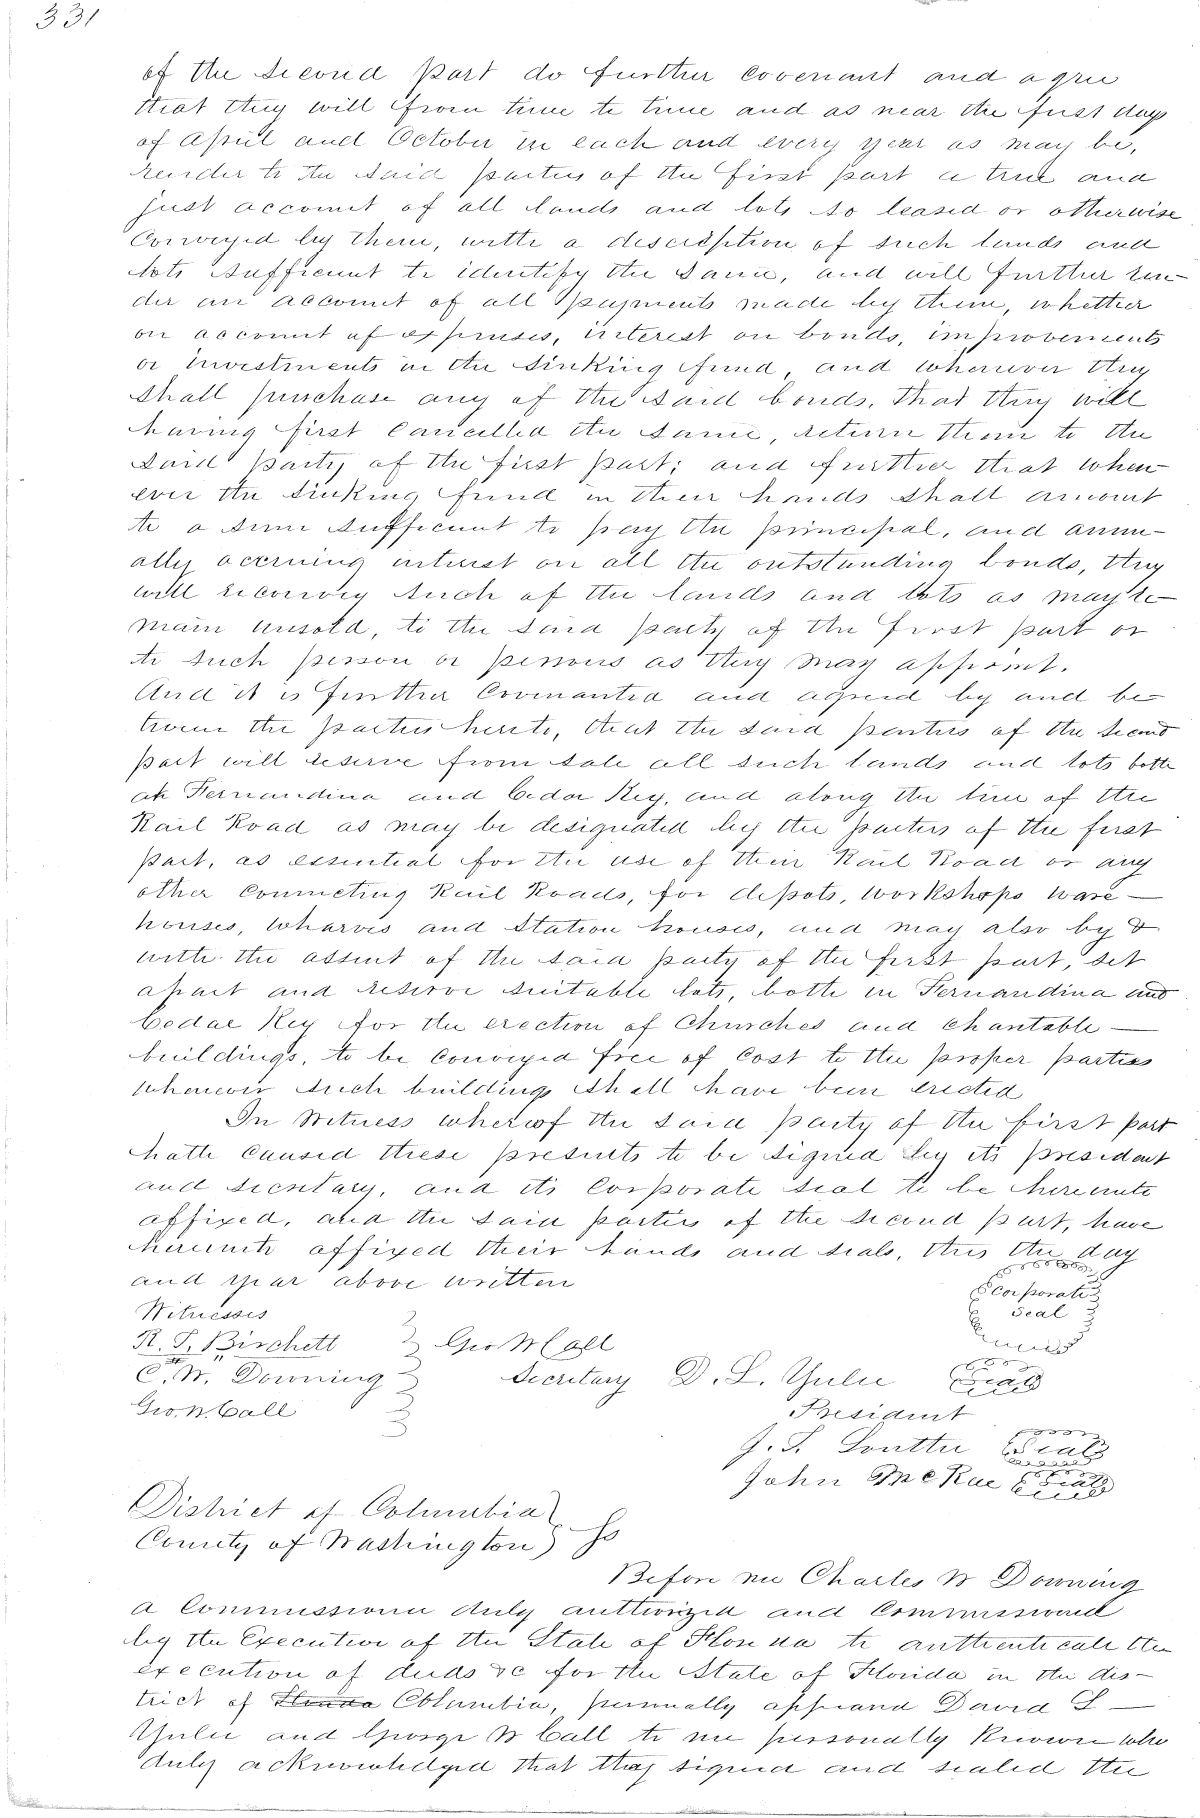 331
of the second part do further covenant and agree
that they will from time to time and as near the first days
of April and October in each and every year as may be,
render to the said parties of the first part a true and
just account of all lands and lots so leased or otherwise
conveyed by them, with a description of such lands and
lots sufficient to identify the same, and will further ren-
der an account of all payments made by them, whether
on account of expenses, interest on bonds, improvements
or investments in the sinking fund, and whenever they
shall purchase any of the said bonds, that they will
having first cancelled the same, return them to the
said party of the first part; and further that when-
ever the sinking fund in their hands shall amount
to a sum sufficient to pay the principal, and annu-
ally accruing interest on all the outstanding bonds, they
will reconvey such of the lands and lots as may re-
main unsold, to the said party of the first part or
to such person or persons as they may appoint.
And it is further Covenanted and agreed by and be-
tween the parties hereto, that the said parties of the second
part will reserve from sale all such lands and lots both
at Fernandina and Cedar Key, and along the line of the
Rail Road as may be designated by the parties of the first
part, as essential for the use of their Rail Road or any
other connecting Rail Roads, for depots, workshops ware-
houses, wharves and station houses, and may also by &
with the assent of the said party of the first part, set
apart and reserve suitable lots, both in Fernandina and
Cedar Key for the erection of Churches and Charitable -
buildings, to be conveyed free of cost to the proper parties
whenever such buildings shall have been erected
In Witness whereof the said party of the first part
hath caused these presents to be signed by its president
and secretary, and its Corporate seal to be hereunto
affixed, and the said parties of the second part, have
hereunto affixed their hands and seals, this the day
and year above written
Corporate
Seal
Witnesses
R. T. Birchett } Geo W Call
C. W. Downing } Secretary D. L. Yulee Seal
Geo. W. Call } President
J. S. Soutter Seal
John McRae Seal
District of Columbia }
County of Washington } ss
Before me Charles W Downing
a Commissioner duly authorized and Commissioned
by the Executive of the State of Florida to authenticate the
execution of deeds &c for the State of Florida in the dis-
trict of Florida Columbia, personally appeared David L -
Yulee and George W Call to me personally known who
duly acknowledged that they signed and sealed the